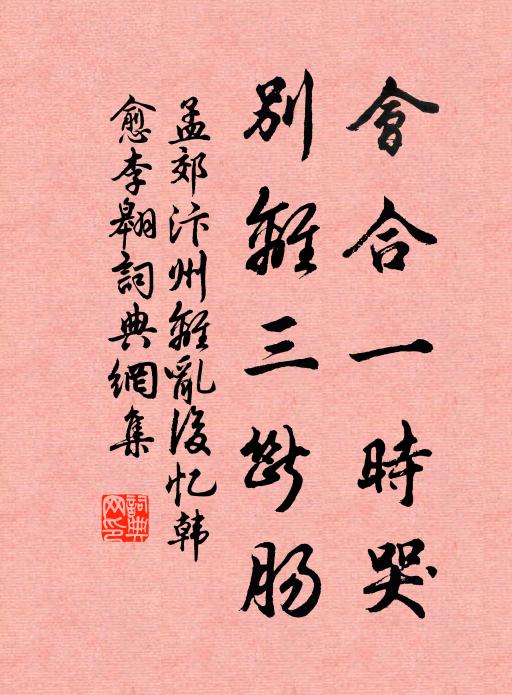 會合一時哭
別離三斷腸
孟郊汴州離亂後忆韩
愈李翱詞典網集
詞典網印